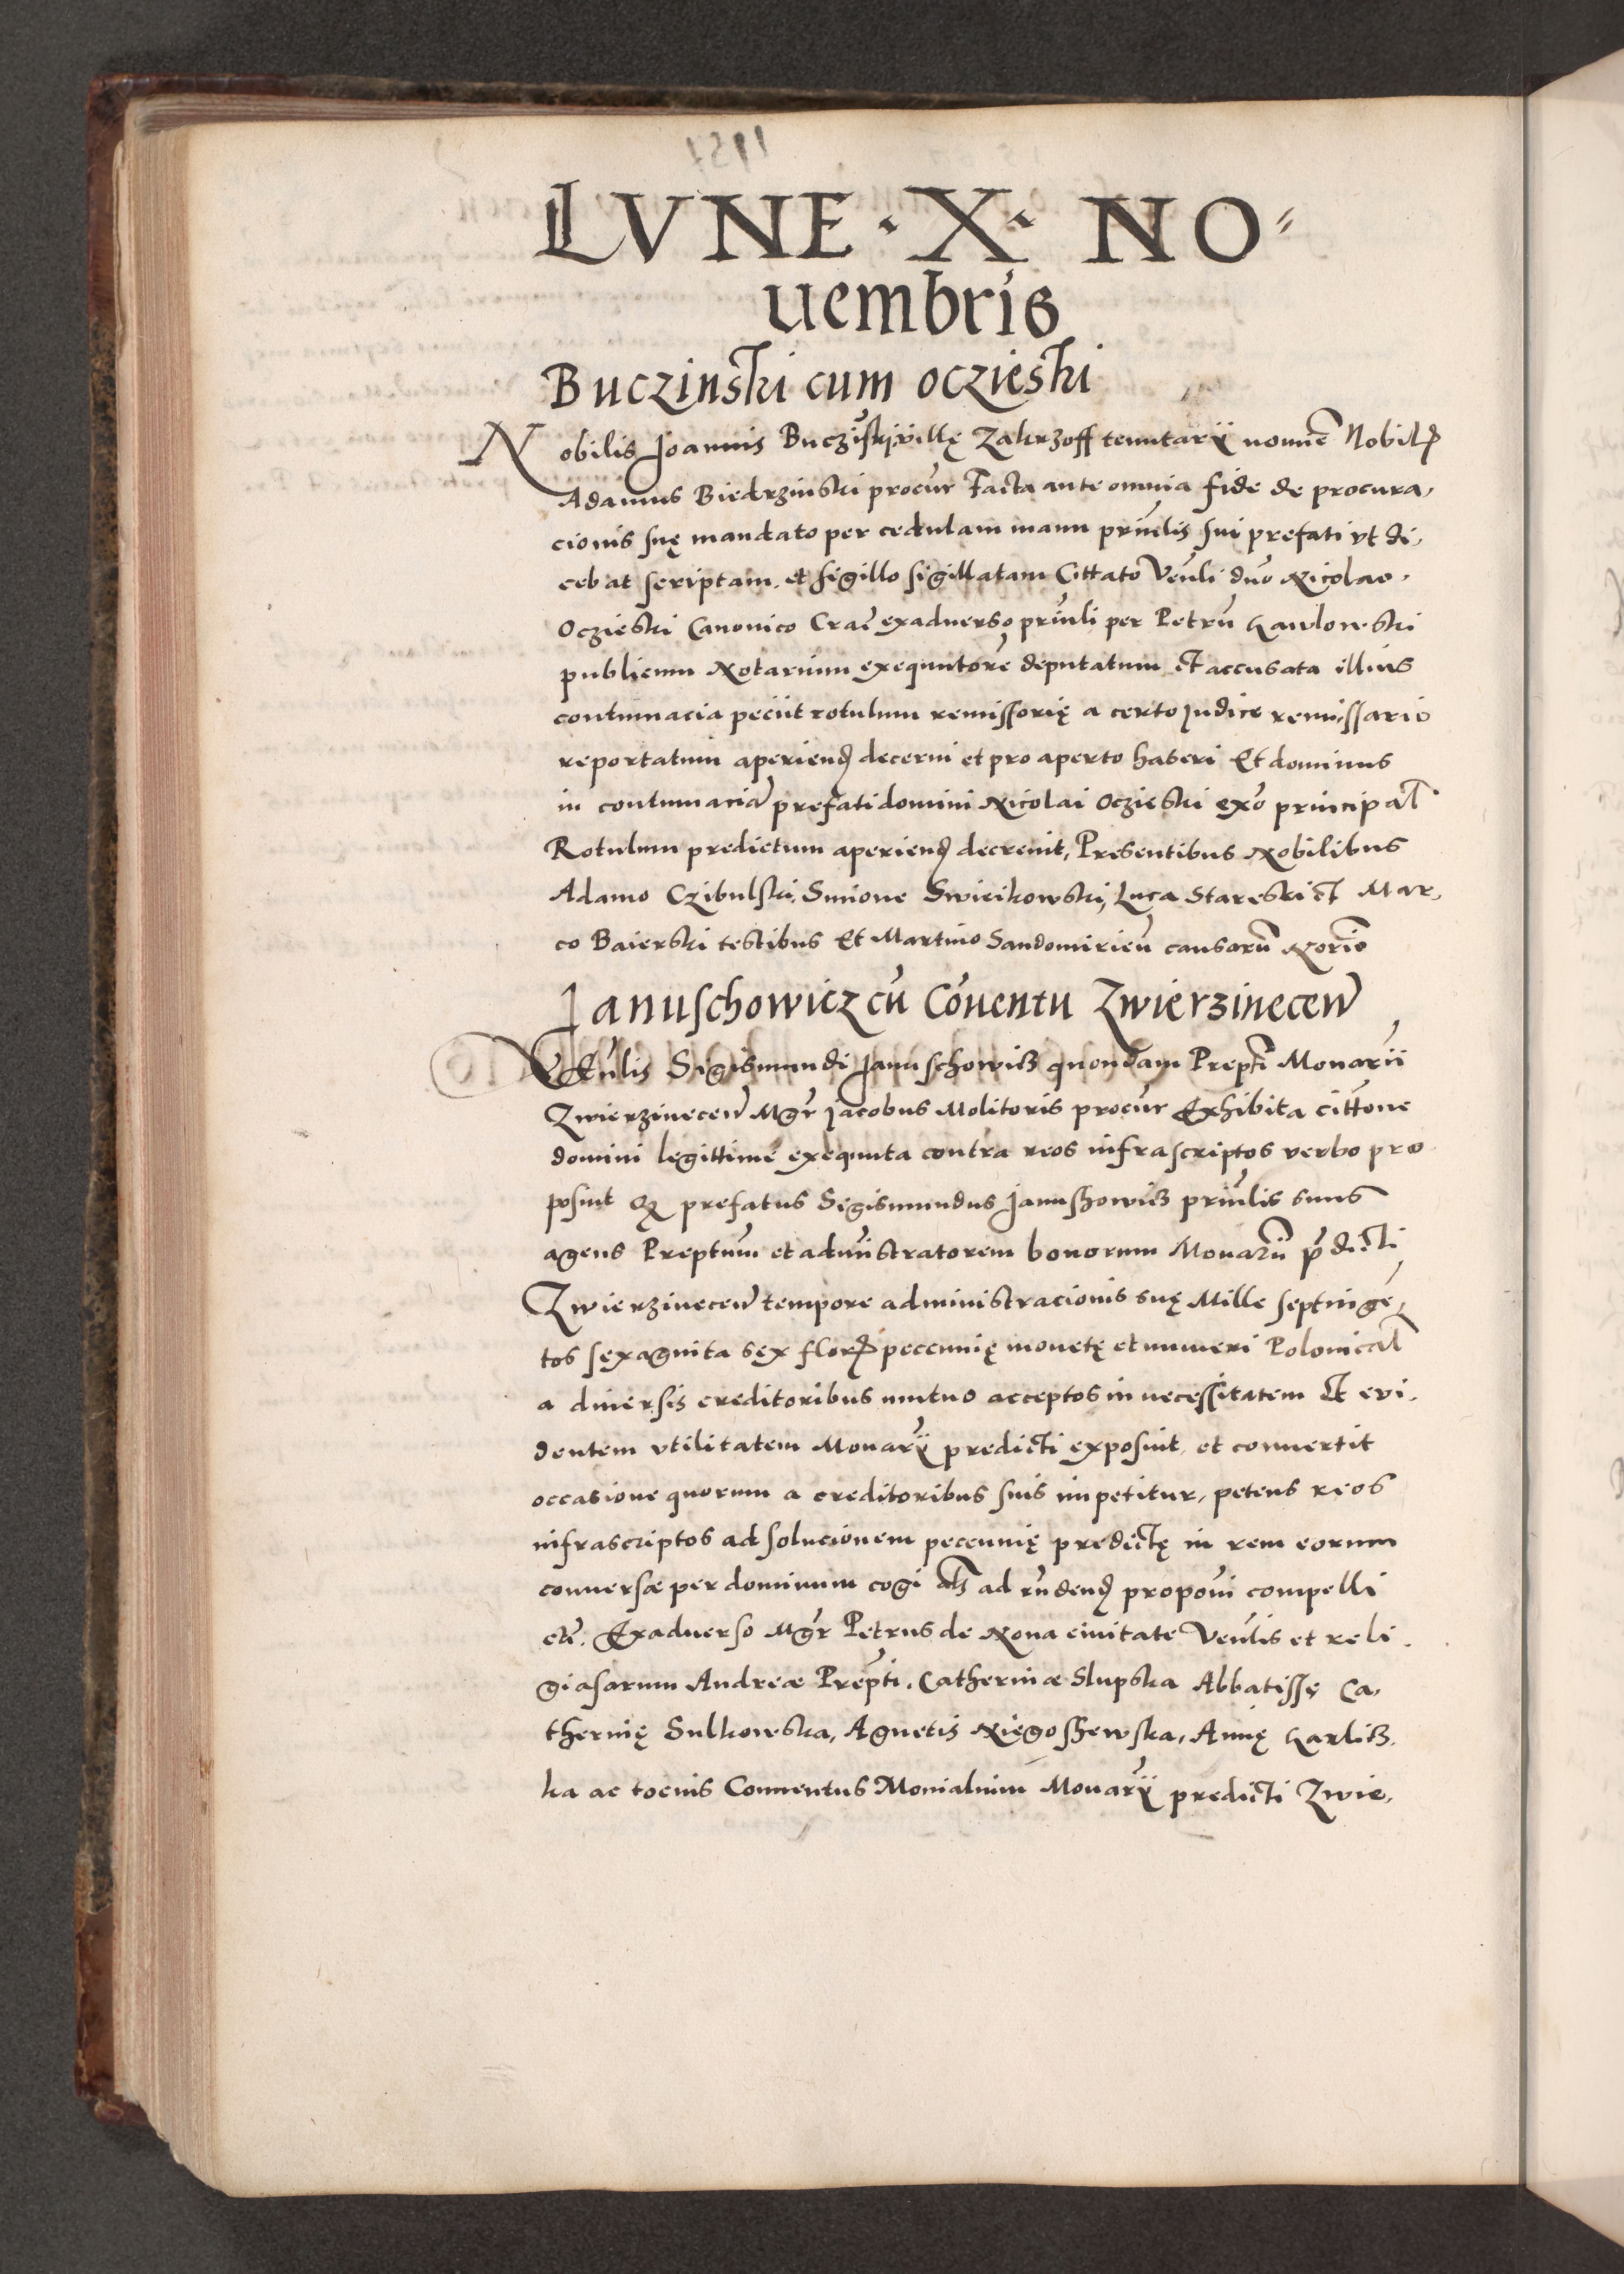 LVNE · X · NO⸗
uembris
Buczinski cum oczieski
Nobilis Joannis Buczīski villę Zakrzoff tenutarÿ nomīe Nobil
Adamus Biedrzinski procur̄ Facta ante omnia fide de procura,
cionis suę mandato per cedulam manu prin̄lis sui prefati vt di,
cebat scriptam. et sigillo sigillatam Cittato Ven̄li dn̄o Nicolao.
Oczieski Canonico Crac̄ exaduerso prin̄li per Petrū Kawlowski
publicum Notarium exequutorē deputatum et accusata illius
contumacia peciit rotulum remissorię a certo Judice remissario
reportatum aperiend decerni et pro aperto haberi Et dominus
in contumaciā prefati domini Nicolai Oczieski exō principal
Rotulum predictum aperiend decreuit, Presentibus Nobilibus
Adamo Czibulski. Simone Swirikowski, Luca Stareski et Mar,
co Baierski testibus Et Martino Sandomirien̄ causarū Norīo
Januschowicz cū Cōuentu Zwierzinecen̄
VEn̄lis Sigismundi Januschowicz quondam Prep̄ti Monar̄ii
Zwierzinecen̄ Mgr̄ Jacobus Molitoris procur̄ Exhibita cittōne
domini legittime exequuta contra reos infrascriptos verbo pro
posuit q prefatus Sigismundus Janushowicz prin̄lis suus
agens Preptum et adm̄istratorem bonorum Monar̄ii p̄dicti
Zwierzinecen̄ tempore administracionis suę Mille septingē,
tos sexaginta sex flor pecunię monetę et numeri Polonical
a diuersis creditoribus mutuo acceptos in necessitatem et evi.
dentem vtilitatem Monar̄ÿ predicti exposuit, et conuertit
occasione quorum a creditoribus suis impetitur, petens reos
infrascriptos ad solucionem pecunię predictę in rem eorum
conuersæ per dominum cogi als ad rn̄dend propon̄i compelli
etc̄. Exaduerso Mgr̄ Petrus de Noua ciuitate Ven̄lis et reli.
giasarum Andreæ Prep̄ti, Catherinæ Slupska Abbatissę Ca,
therinę Sulkowska, Agnetis Niegoshewska, Annę Karlicz,
ka ac tocius Conuentus Monialium Monar̄ÿ predicti Zwie,